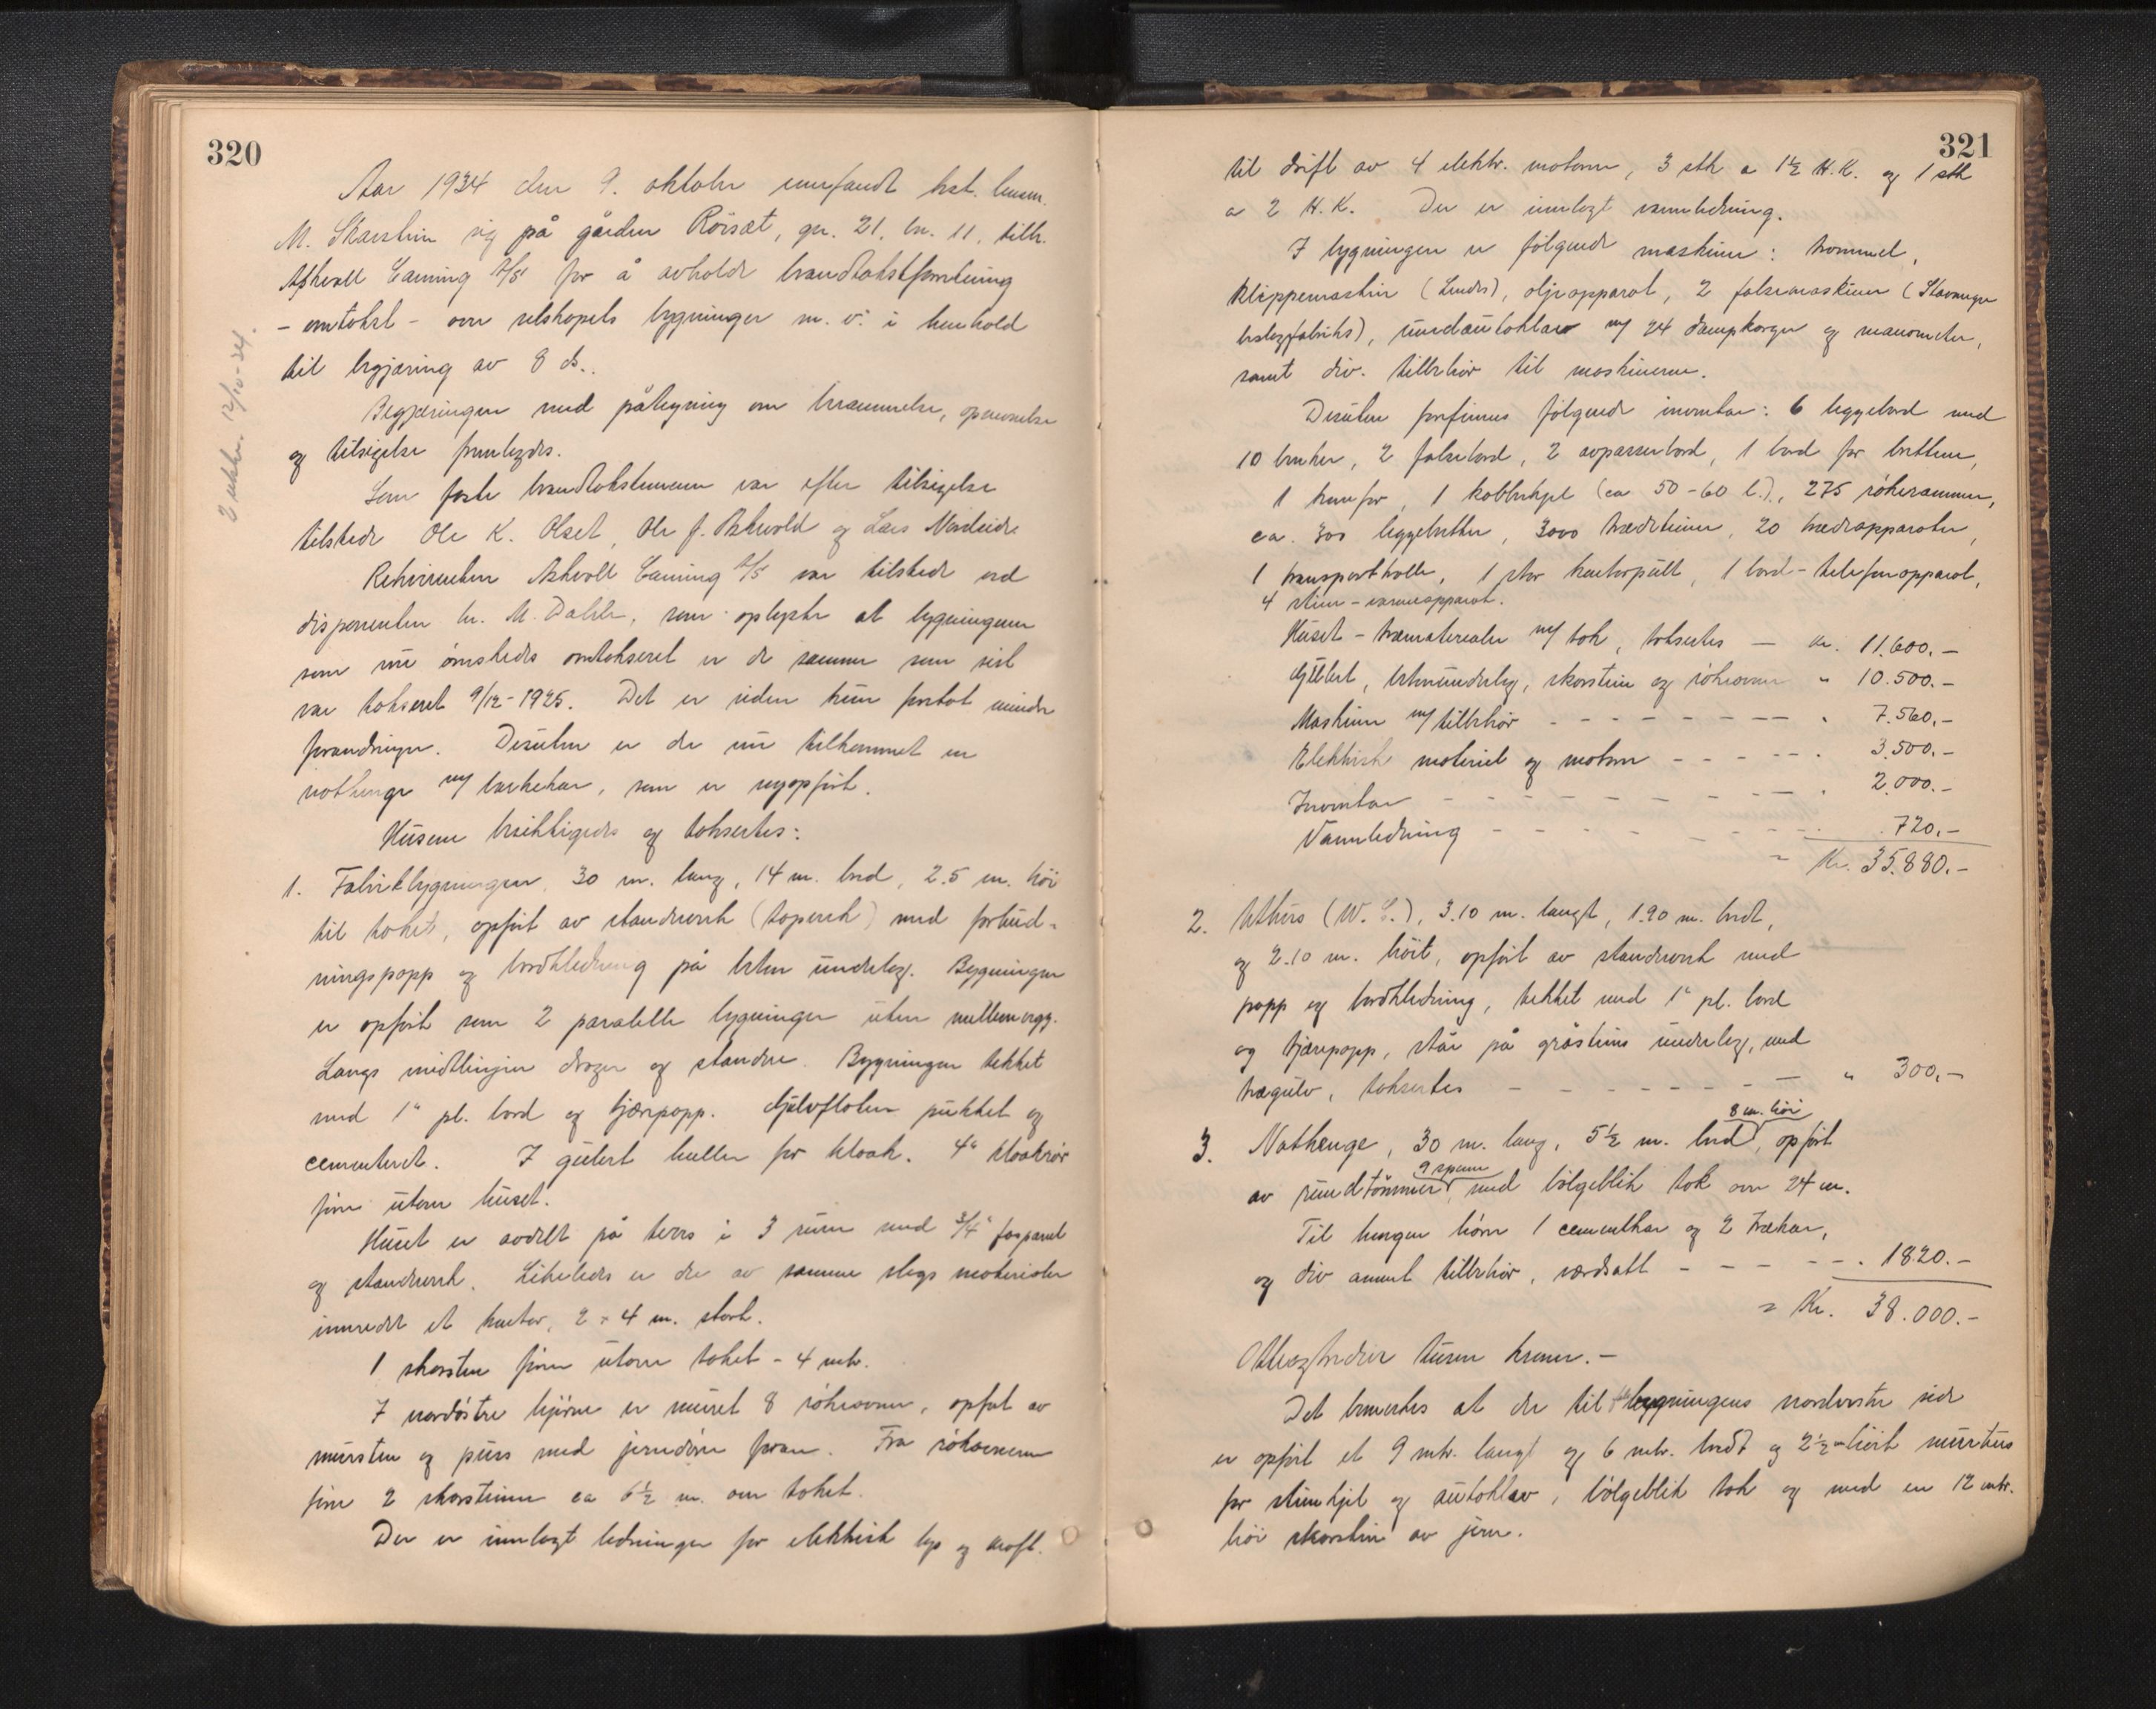 320
Aar 1934 den 9. oktober innfandt kst. lensm.
M. Skarstein sig på gården Röisæt, gr. 21. br. 11. tilh.
Askvoll Caning A/S for å avholde brandtakstforretning
- omtakst - over selskapets bygninger m. v. i henhold
til begjæring av 8 ds.
Begjæringen med påtegning om berammelse, opnevnelse
og tilsigelse fremlegdes.
Som faste brandtakstmenn var efter tilsigelse
tilstede Ole K. Olset, Ole J. Askvold og Lars Nordeide
Rekvirenten Askvoll Caning A/S var tilstede ved
disponenten hr. M. Dahle, som oplyste at bygningene
som nu ønskedes omtakseret er de samme som sist
var takseret 9/12-1925. Det er siden kun foretat mindre
forandringer. Desuten er der nu tilkommet en
nothenge m/ barkekar, som er nyopført.
Husene besiktigedes og taksertes:
1. Fabrikbygningen, 30 m. lang, 14 m. bred, 2.5 m. høi
til taket, opført av standverk med forhud-
ningspapp og bordkledning på beton underlag. Bygningen
er opført som 2 paralelle bygninger uten mellemvegg.
Langs midtlinjen drager og standere. Bygningen tekket
med 1" pl. bord og tjærepapp. Gulvflaten pukket og
cementeret. I gulvet huller for kloak. 4" kloakrör
förer utover huset.
Huset er avdelt på tvers i 3 rum med 3/4" faspanel
og standverk. Likeledes er der av samme slags materialer
innredet et kontor, 2 × 4 m. stort.
1 skorsten förer utover taket - 4 mtr.
I nordöstre hjörne er muret 8 rökeovner, opfört av
mursten og puss med jerndörer foran. Fra rökovnene
förer 2 skorstener ca 6½ m. over taket.
Der er innlagt ledninger for elektrisk lys og kraft.
2 utskr. 12/10-34.
321
til drift av 4 elektr. motorer, 3 stk a 1½ H.K. og 1 stk
a 2 H.K. Der er innlagt vannledning.
I bygningen er følgende maskiner: trommel,
klippemaskin (Lindes), oljeapparat, 2 falsemaskiner (Stavanger
beslagfabriks), rundautoklav m/ 24 dampkorger og manometer,
samt div. tilbehør til maskinerne.
Desuten forfinnes følgende inventar: 6 leggebord med
10 benker, 2 falsebord, 2 avpasserbord, 1 bord for brettene,
1 komfyr, 1 kobberkjel (ca 50-60 l.), 275 rökerammer,
ca. 300 leggebretter, 3000 trædeteiner, 20 trædeapparater,
1 transporttralle, 1 stor kontorpult, 1 bord-telefonapparat,
4 stim-varmeapparat.
Huset - træmaterialer m/ tak, taksertes — kr. 11.600.-
Gulvet, betonunderlag, skorstein og rökeovner " 10.500.-
Maskiner m/ tilbehör - - - - - - - " 7.560.-
Elektrisk materiel og motorer - - - - - " 3.500.-
Inventar - - - - - - - - - - " 2.000.-
Vannledning - - - - - - - - - 720.-
= Kr. 35.880.-
2. Uthus (W. C.), 3.10 m. langt, 1.90 m. bredt,
og 2.10 m. höit, opfört av standverk med
papp og bordkledning, tekket med 1" pl. bord
og tjærepapp, står på gråsteins underlag, med
trægulv, taksertes - - - - - - - - " 300.-
3. Nothenge, 30 m. lang, 5½ m. bred, 8 m. höi, opfört
av rundtömmer, 9 spenn, med bölgeblik tak over 24 m.
Til hengen hörer 1 cementkar og 2 trækar,
og div annet tilbehör, verdsatt - - - - - " 1820.-
= Kr. 38.000.-
Otteogtredive tusen kroner.-
Det bemerkes at der til bygningens nordvestre side
er opfört et 9 mtr. langt og 6 mtr. bredt og 2½ m höit murhus
for stimkjel og autoklav, bölgeblik tak og med en 12 mtr.
höi skorstein av jern.